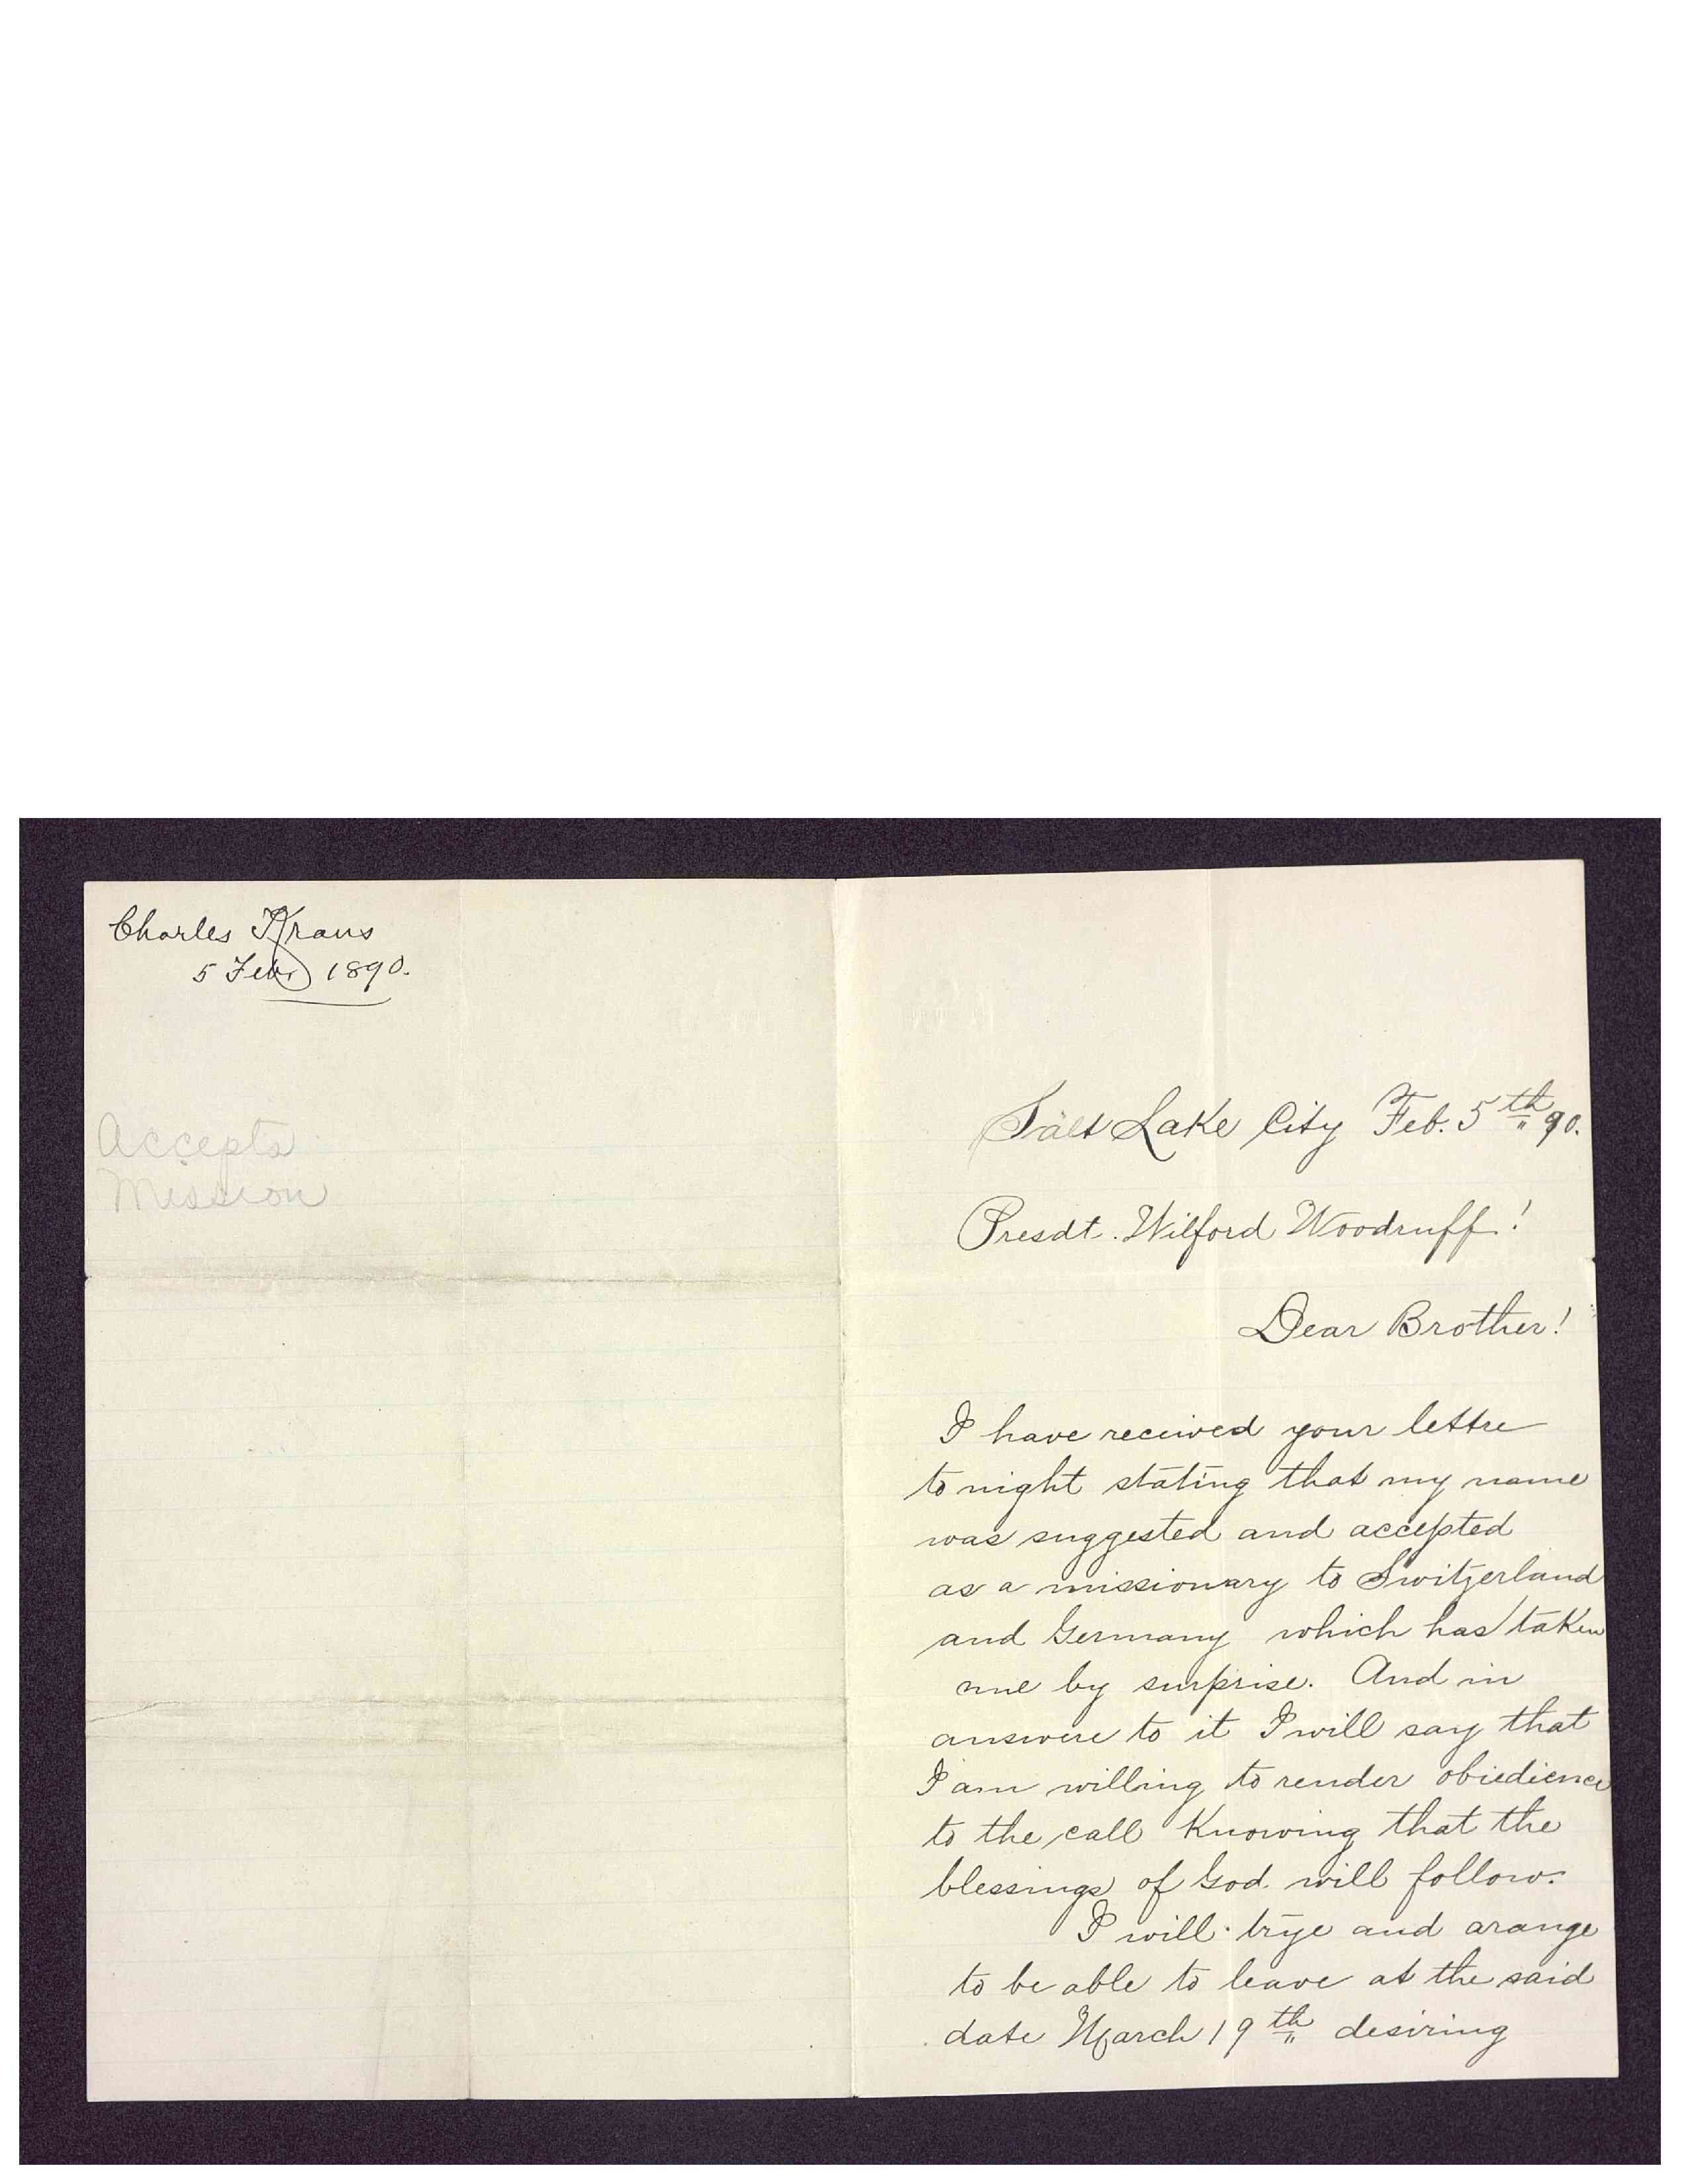 Charles Kraus
5 Febr 1890.
Accepts
Mission
Salt Lake City Feb. 5th 90.
Presdt. Wilford Woodruff!
Dear Brother!
I have received your lettre
to night stating that my name
was suggested and accepted
as a missionary to Switzerland
and Germany which has taken
me by surprise. And in
answere to it I will say that
I am willing to render obiedience
to the call Knowing that the
blessings of God will follow.
I will trye and arange
to be able to leave at the said
date March 19th desiring